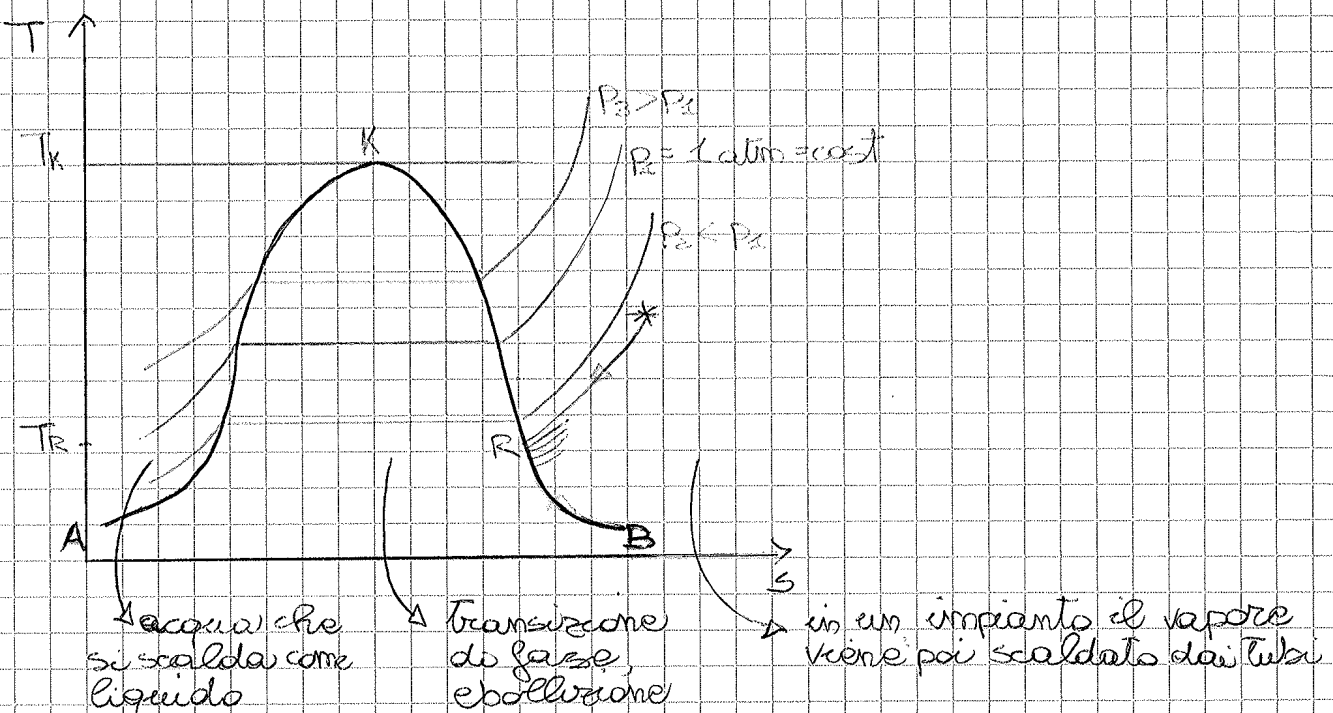 T
P₃>P₁
K
Tₖ
P₁ = 1 atm = cost
P₂ < P₁
*
T_R
R
A
B
S
acqua che
si scalda come
liquido
transizione
di fase,
ebollizione
in un impianto il vapore
viene poi scaldato dai tubi